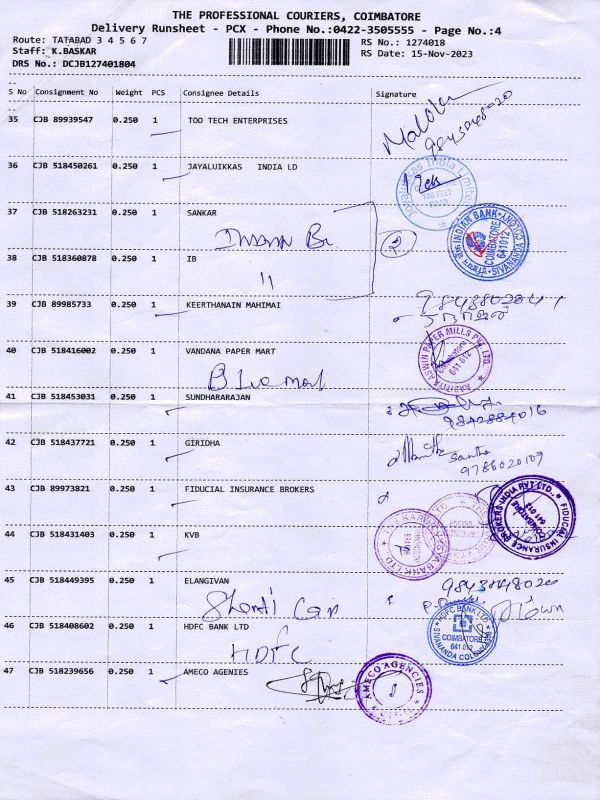 THE PROFESSIONAL COURIERS, COIMBATORE
Delivery Runsheet - PCX - Phone No.:0422-3505555 - Page No.:4
Route: TATABAD 3 4 5 6 7
RS No.: 1274018
Staff: K.BASKAR
RS Date: 15-Nov-2023
DRS No.: DCJB127401804
S No Consignment No Weight PCS Consignee Details Signature
35 CJB 89939547 0.250 1 TOO TECH ENTERPRISES
36 CJB 518450261 0.250 1 JAYALUIKKAS INDIA LD
37 CJB 518263231 0.250 1 SANKAR
INDIAN BANK
COIMBATORE
641012
38 CJB 518360878 0.250 1 IB
11
39 CJB 89985733 0.250 1 KEERTHANAIN MAHIMAI
40 CJB 518416002 0.250 1 VANDANA PAPER MART
PAPER MILLS PVT. LTD.
641 012
41 CJB 518453031 0.250 1 SUNDHARARAJAN
9842884016
42 CJB 518437721 0.250 1 GIRIDHA
Santha
9786020109
43 CJB 89973821 0.250 1 FIDUCIAL INSURANCE BROKERS
FIDUCIAL INSURANCE BROKERS INDIA PVT LTD.
COIMBATORE
641 012
44 CJB 518431403 0.250 1 KVB
45 CJB 518449395 0.250 1 ELANGIVAN
Shanti
46 CJB 518408602 0.250 1 HDFC BANK LTD
HDFC
HDFC BANK LTD.
COIMBATORE
641 012
SIVANANDA COLONY
47 CJB 518239656 0.250 1 AMECO AGENIES
AMECO AGENCIES